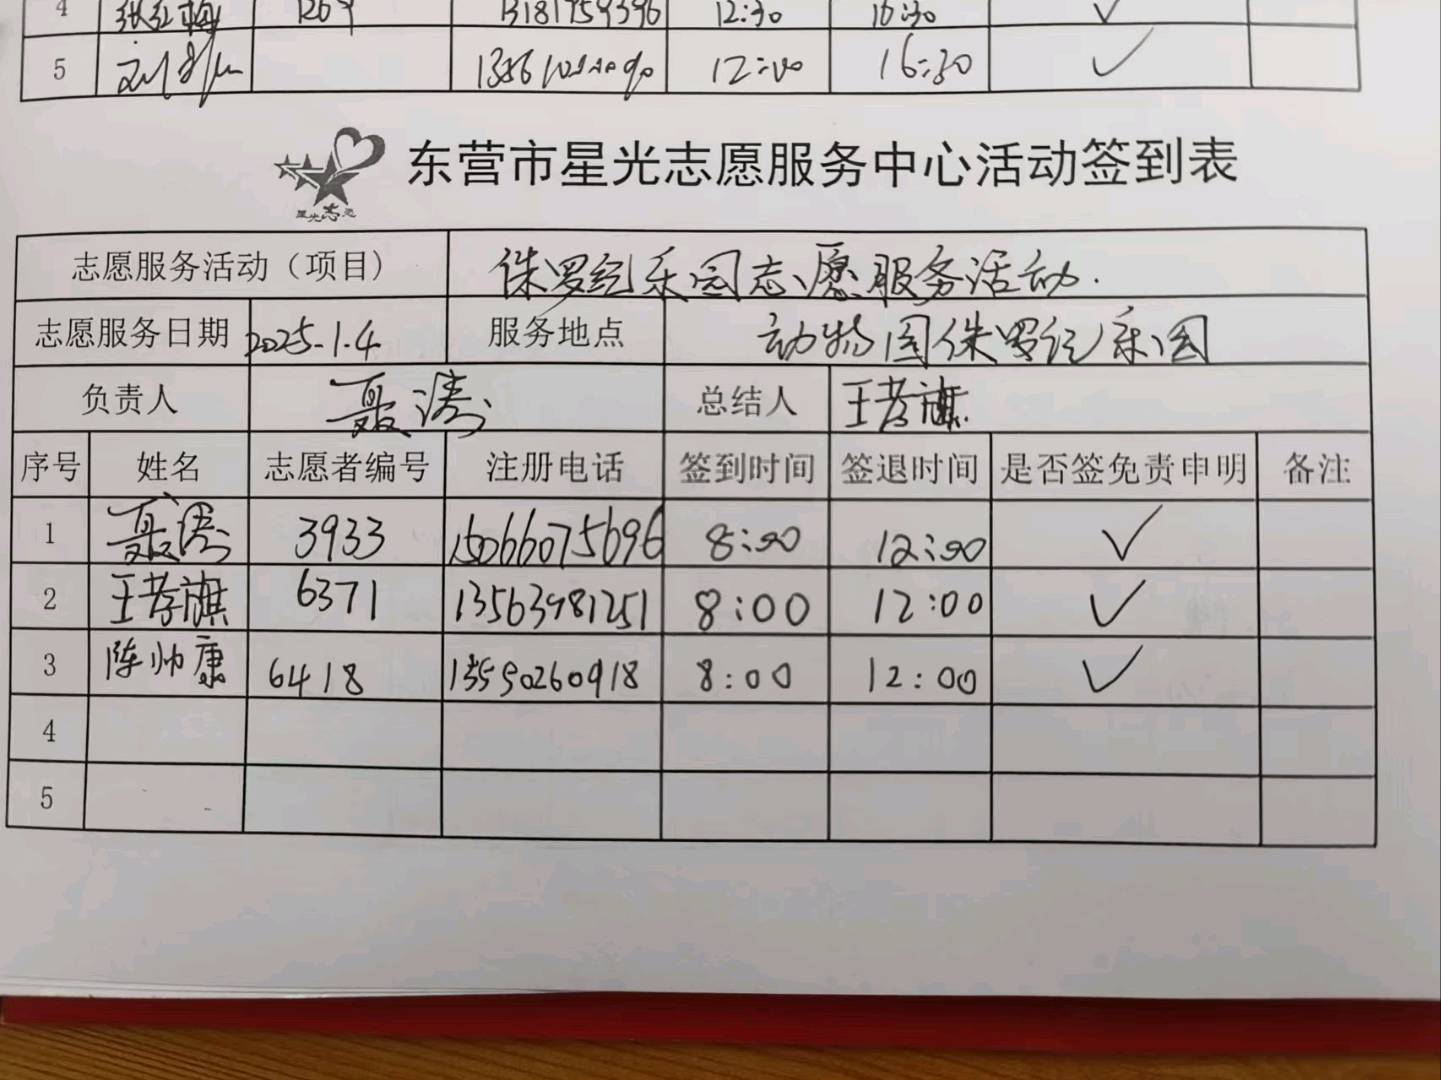 4 张红梅 1269 13181759396 12:30 16:30 ✓
5 12:00 16:30 ✓
星光志愿
东营市星光志愿服务中心活动签到表
志愿服务活动（项目） 侏罗纪乐园志愿服务活动.
志愿服务日期 2025.1.4 服务地点 动物园侏罗纪乐园
负责人 聂涛 总结人 王孝旗
序号 姓名 志愿者编号 注册电话 签到时间 签退时间 是否签免责申明 备注
1 聂涛 3933 15066075696 8:00 12:00 ✓
2 王孝旗 6371 13563481251 8:00 12:00 ✓
3 陈帅康 6418 13550260918 8:00 12:00 ✓
4
5